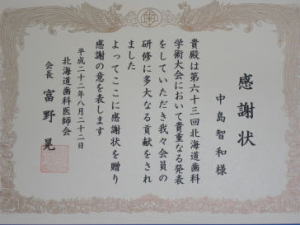 感謝状
中島智和様
貴殿は第六十三回北海道歯科
学術大会において貴重なる発表
をしていただき我々会員の
研修に多大なる貢献をされ
ました
よってここに感謝状を贈り
感謝の意を表します
平成二十二年八月二十二日
北海道歯科医師会
会長 富野晃